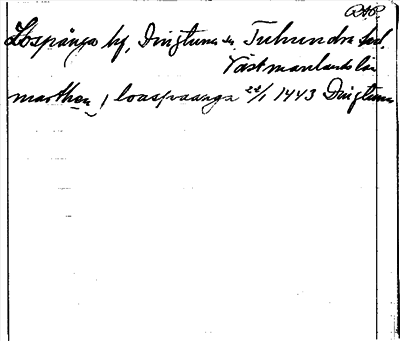 D.H.S.
Lospånga by, Dingtuna sn, Tuhundra hd.
Västmanlands län
marthen j loaspaanga 22/1 1443 Dingtuna